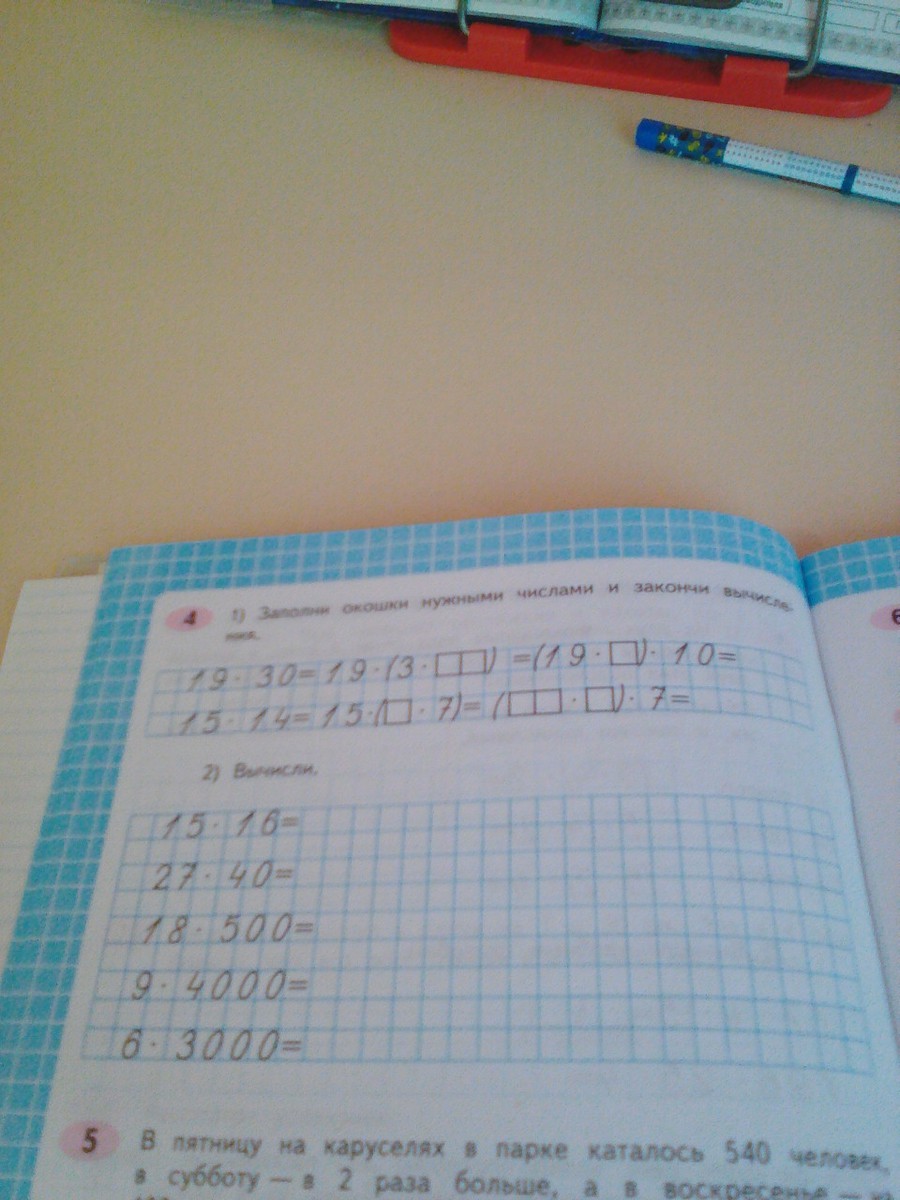 4 1) Заполни окошки нужными числами и закончи вычисле-
ния.
19 · 30 = 19 · (3 · □□) = (19 · □) · 10 =
15 · 14 = 15 · (□ · 7) = (□□ · □) · 7 =
2) Вычисли.
15 · 16 =
27 · 40 =
18 · 500 =
9 · 4000 =
6 · 3000 =
5 В пятницу на каруселях в парке каталось 540 человек,
в субботу — в 2 раза больше, а в воскресенье
6